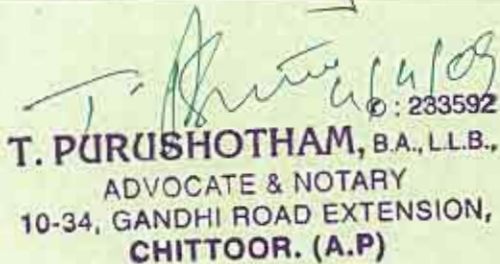 ✆ : 233592
T. PURUSHOTHAM, B.A., L.L.B.,
ADVOCATE & NOTARY
10-34, GANDHI ROAD EXTENSION,
CHITTOOR. (A.P)